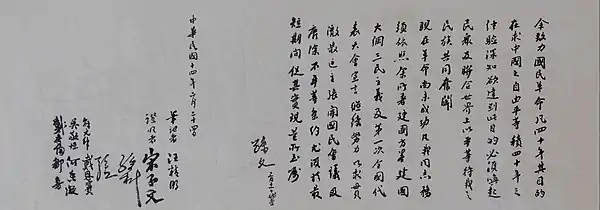 余致力國民革命凡四十年其目的
在求中國之自由平等積四十年之
經驗深知欲達到此目的必須喚起
民衆及聯合世界上以平等待我之
民族共同奮鬭
現在革命尚未成功凡我同志務
須依照余所著建國方畧建國
大綱三民主義及第一次全國代
表大會宣言繼續努力以求貫
澈最近主張開國民會議及
廢除不平等條約尤須於最
短期間促其實現是所至囑
孫文
中華民國十四年二月二十四日
筆記者 汪精衛
證明者 宋子文
孫科
邵元冲 戴恩賽
吳敬恒 何香凝
戴季陶 鄒魯